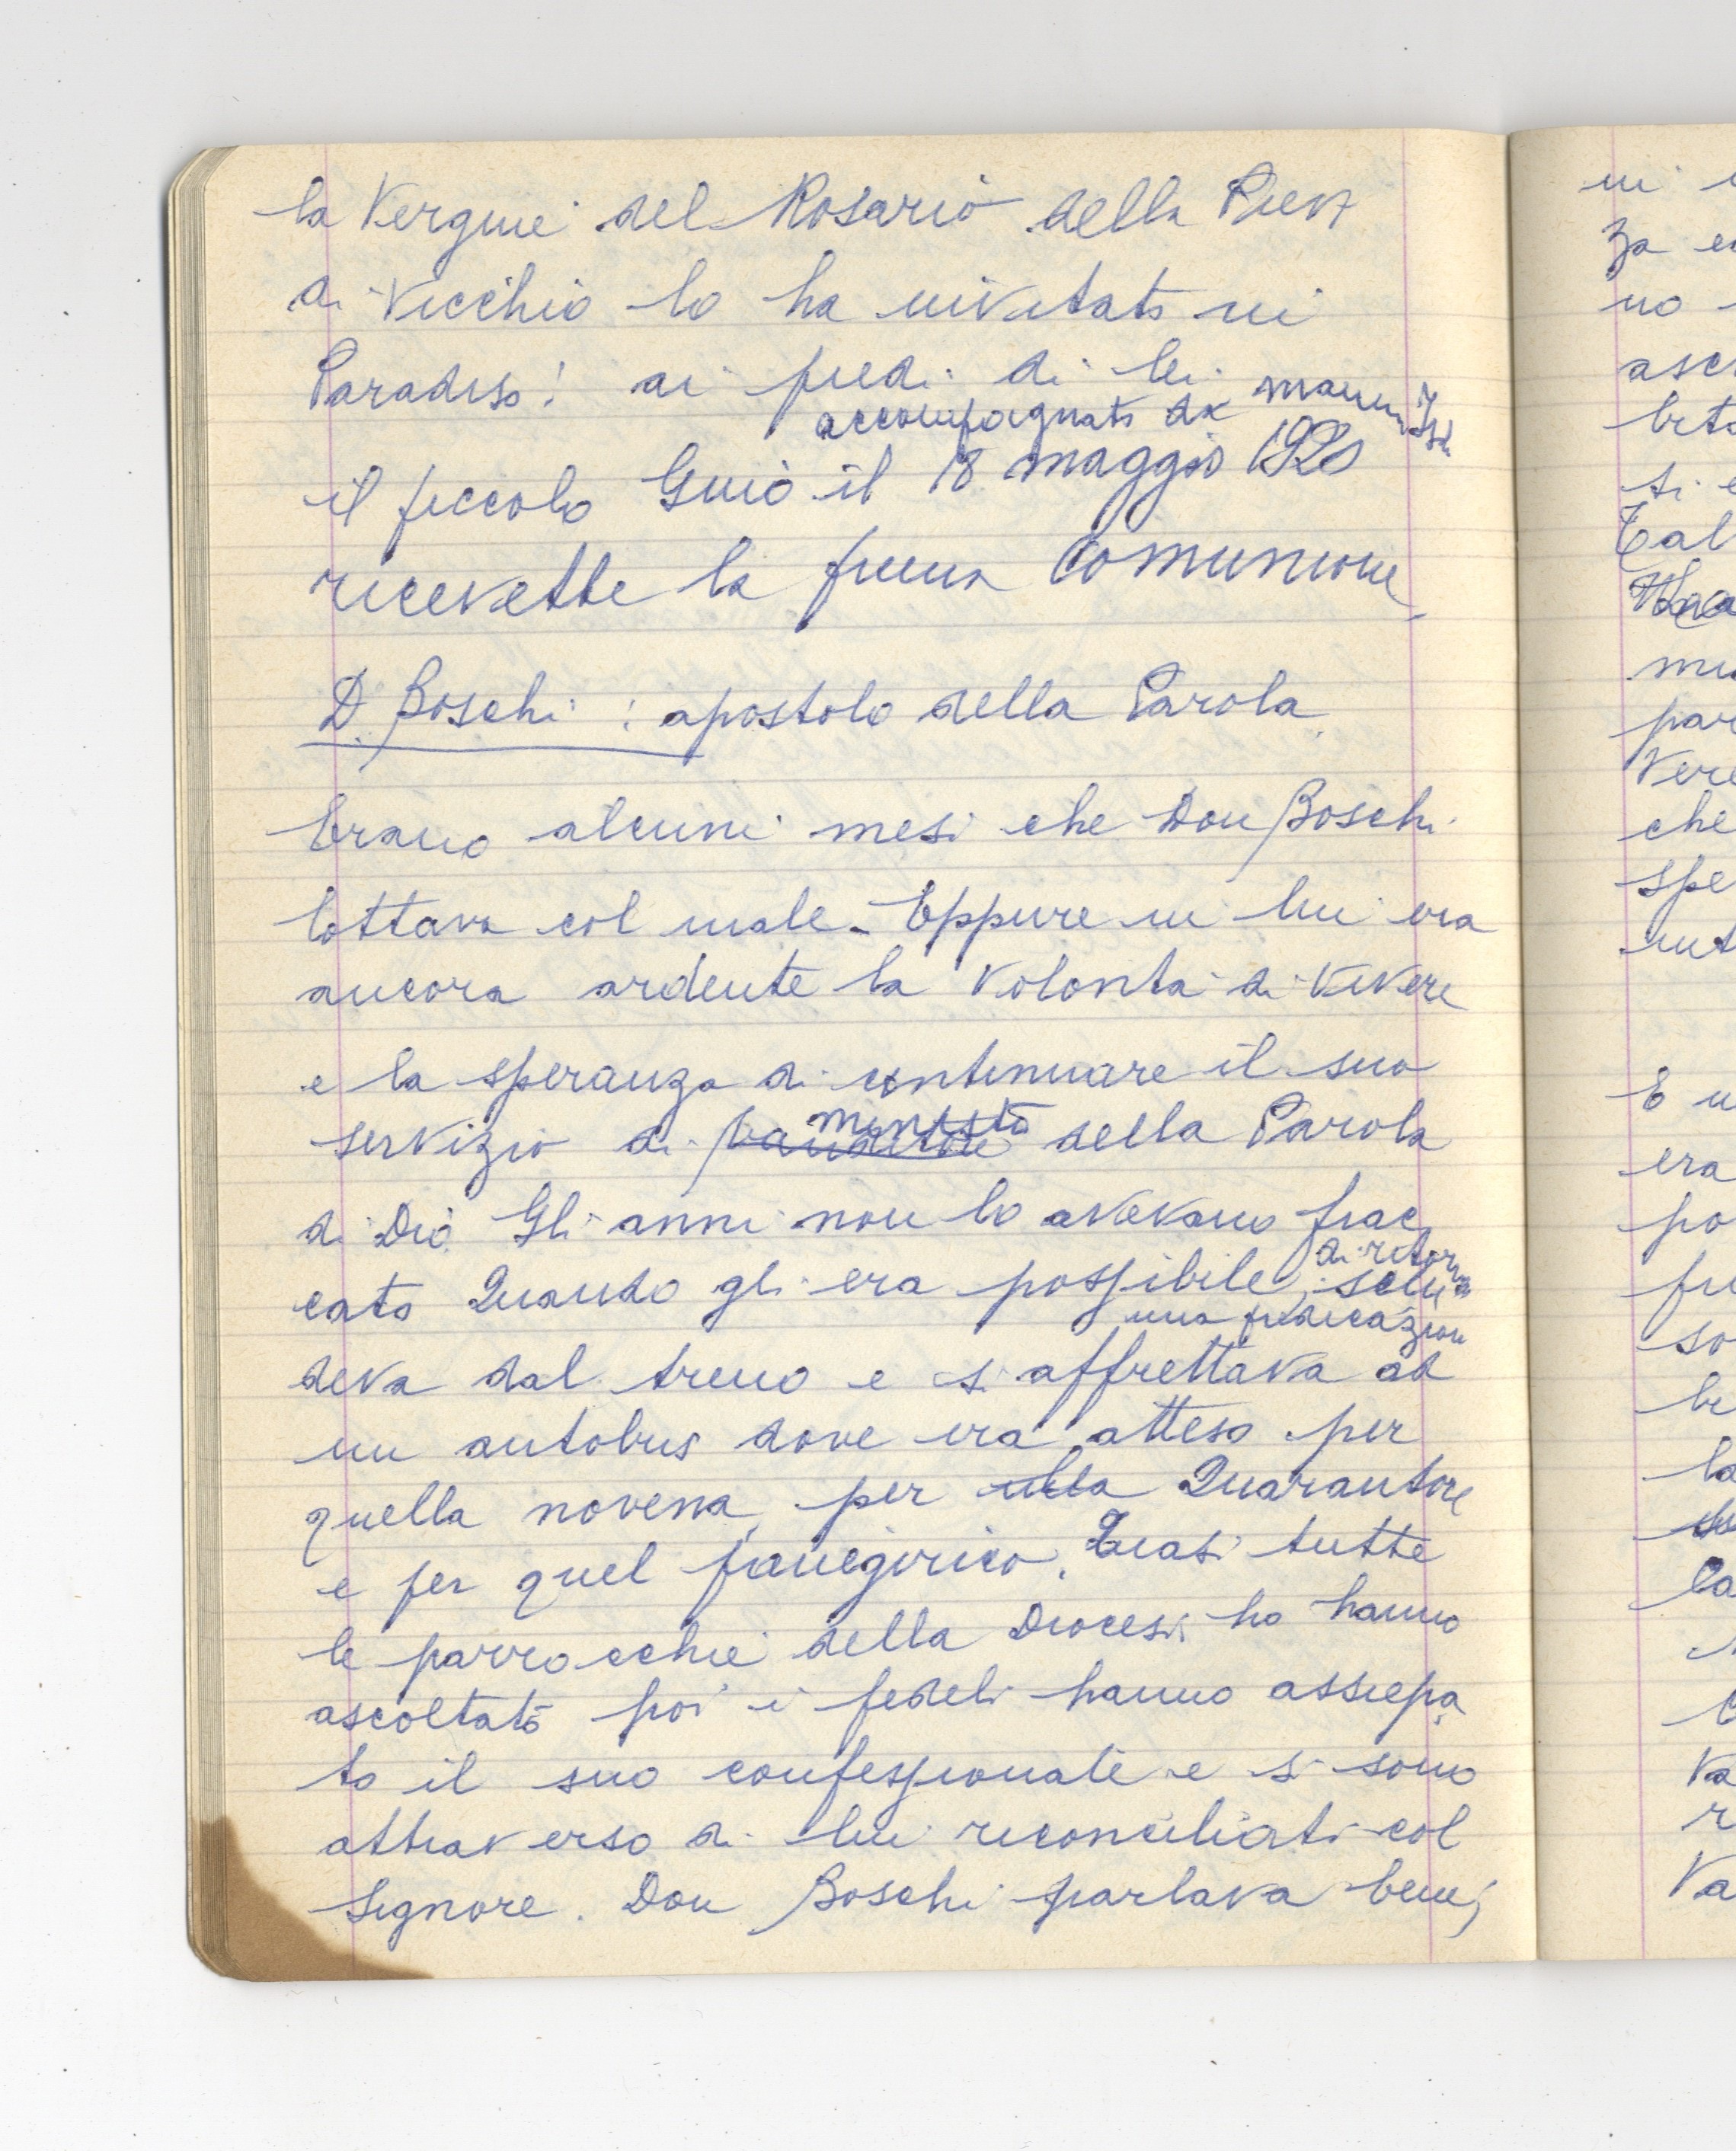 la Vergine del Rosario della Pieva
di Vicchio lo ha invitato in
Paradiso! ai piedi di lei
accompagnato da mamma
il piccolo Gino il 18 maggio 1920
ricevette la prima Comunione
D. Boschi : apostolo della Parola
Erano alcuni mesi che Don Boschi
lottava col male. Eppure in lui era
ancora ardente la volontà di vivere
e la speranza di continuare il suo
ministro
servizio di banditore della Parola
di Dio. Gli anni non lo avevano fiac
di ritorno
cato Quando gli era possibile, scen
una predicazion
deva dal treno e si affrettava ad
un autobus dove era atteso per
quella novena, per Quarantore
e per quel panegirico. Quasi tutte
le parrocchie della Diocesi, lo hanno
ascoltato poi i fedeli hanno assiepa
to il suo confessionale e si sono
attraverso di lui riconciliati col
Signore. Don Boschi parlava bene;
in
za
no
asc
ti
par
Vere
che
spe
E
era
po
so
la
Va
r
Va